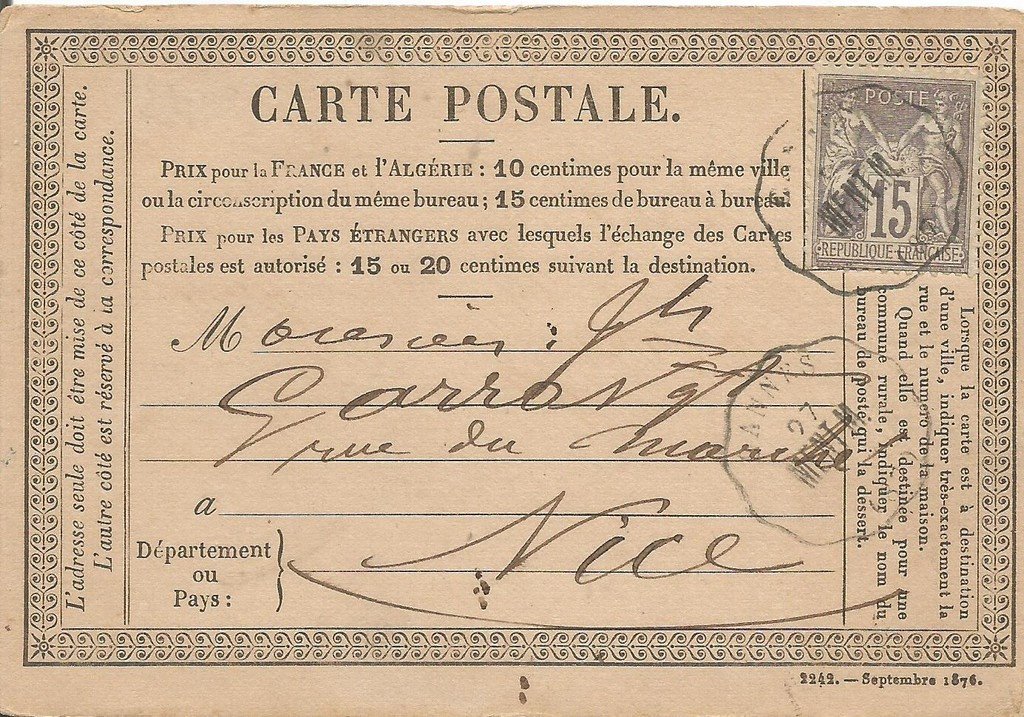 CARTE POSTALE.
PRIX pour la FRANCE et l'ALGÉRIE : 10 centimes pour la même ville
ou la circonscription du même bureau ; 15 centimes de bureau à bureau.
PRIX pour les PAYS ÉTRANGERS avec lesquels l'échange des Cartes
postales est autorisé : 15 ou 20 centimes suivant la destination.
POSTE
15
REPUBLIQUE FRANÇAISE
MENT
L'adresse seule doit être mise de ce côté de la carte.
L'autre côté est réservé à la correspondance.
M
rue du marché
à
Nice
Département
ou
Pays :
MENT
Lorsque la carte est à destination
d'une ville, indiquer très-exactement la
rue et le numéro de la maison.
Quand elle est destinée pour une
commune rurale, indiquer le nom du
bureau de poste qui la dessert.
2242. — Septembre 1876.